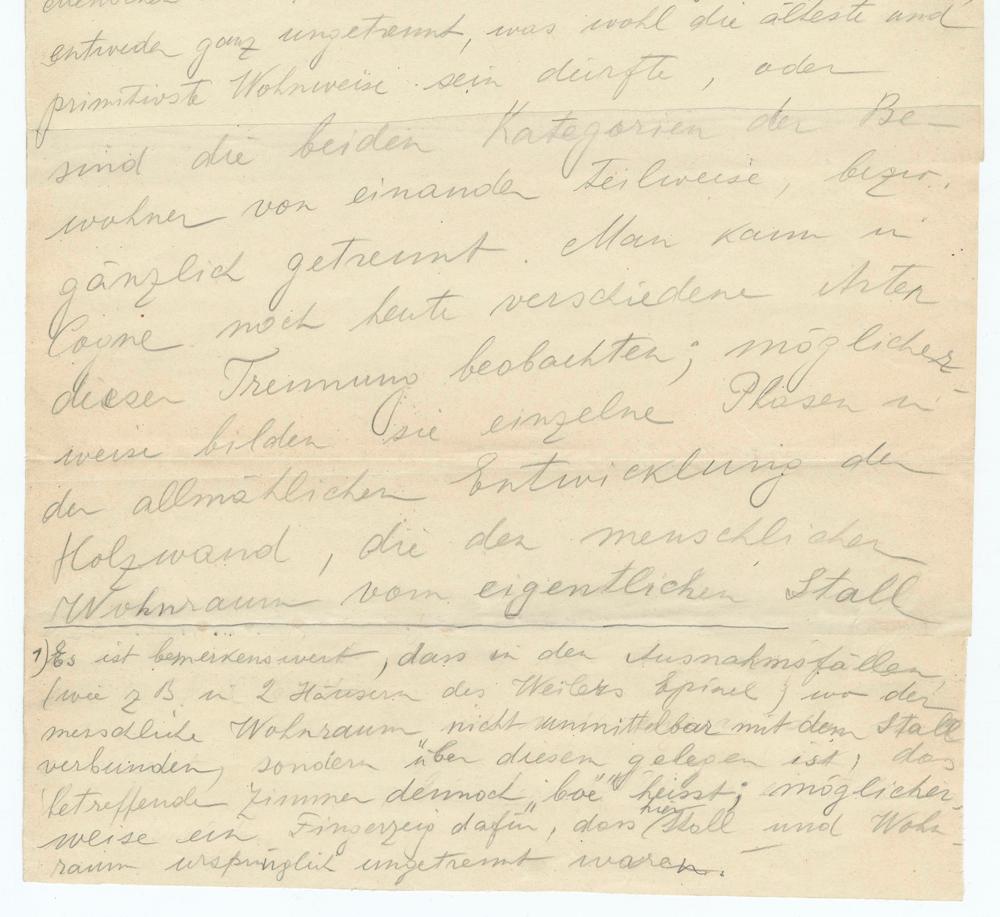 entweder ganz ungetrennt, was wohl die älteste und
primitivste Wohnweise sein dürfte, oder
sind die beiden Kategorien der Be-
wohner von einander teilweise, bezw.
gänzlich getrennt. Man kann in
Cogne noch heute verschiedene Arten
dieser Trennung beobachten; möglicher-
weise bilden sie einzelne Phasen in
der allmählichen Entwicklung der
Holzwand, die den menschlichen
Wohnraum vom eigentlichen Stall
1) Es ist bemerkenswert, dass in den Ausnahmsfällen,
(wie z B in 2 Häusern des Weilers Epinel) wo der
menschliche Wohnraum nicht unmittelbar mit dem Stall
verbunden, sondern über diesem gelegen ist, das
betreffende Zimmer dennoch „böe“ heisst; möglicher-
weise ein Fingerzeig dafür, dass hier Stall und Wohn-
raum ursprünglich ungetrennt waren.